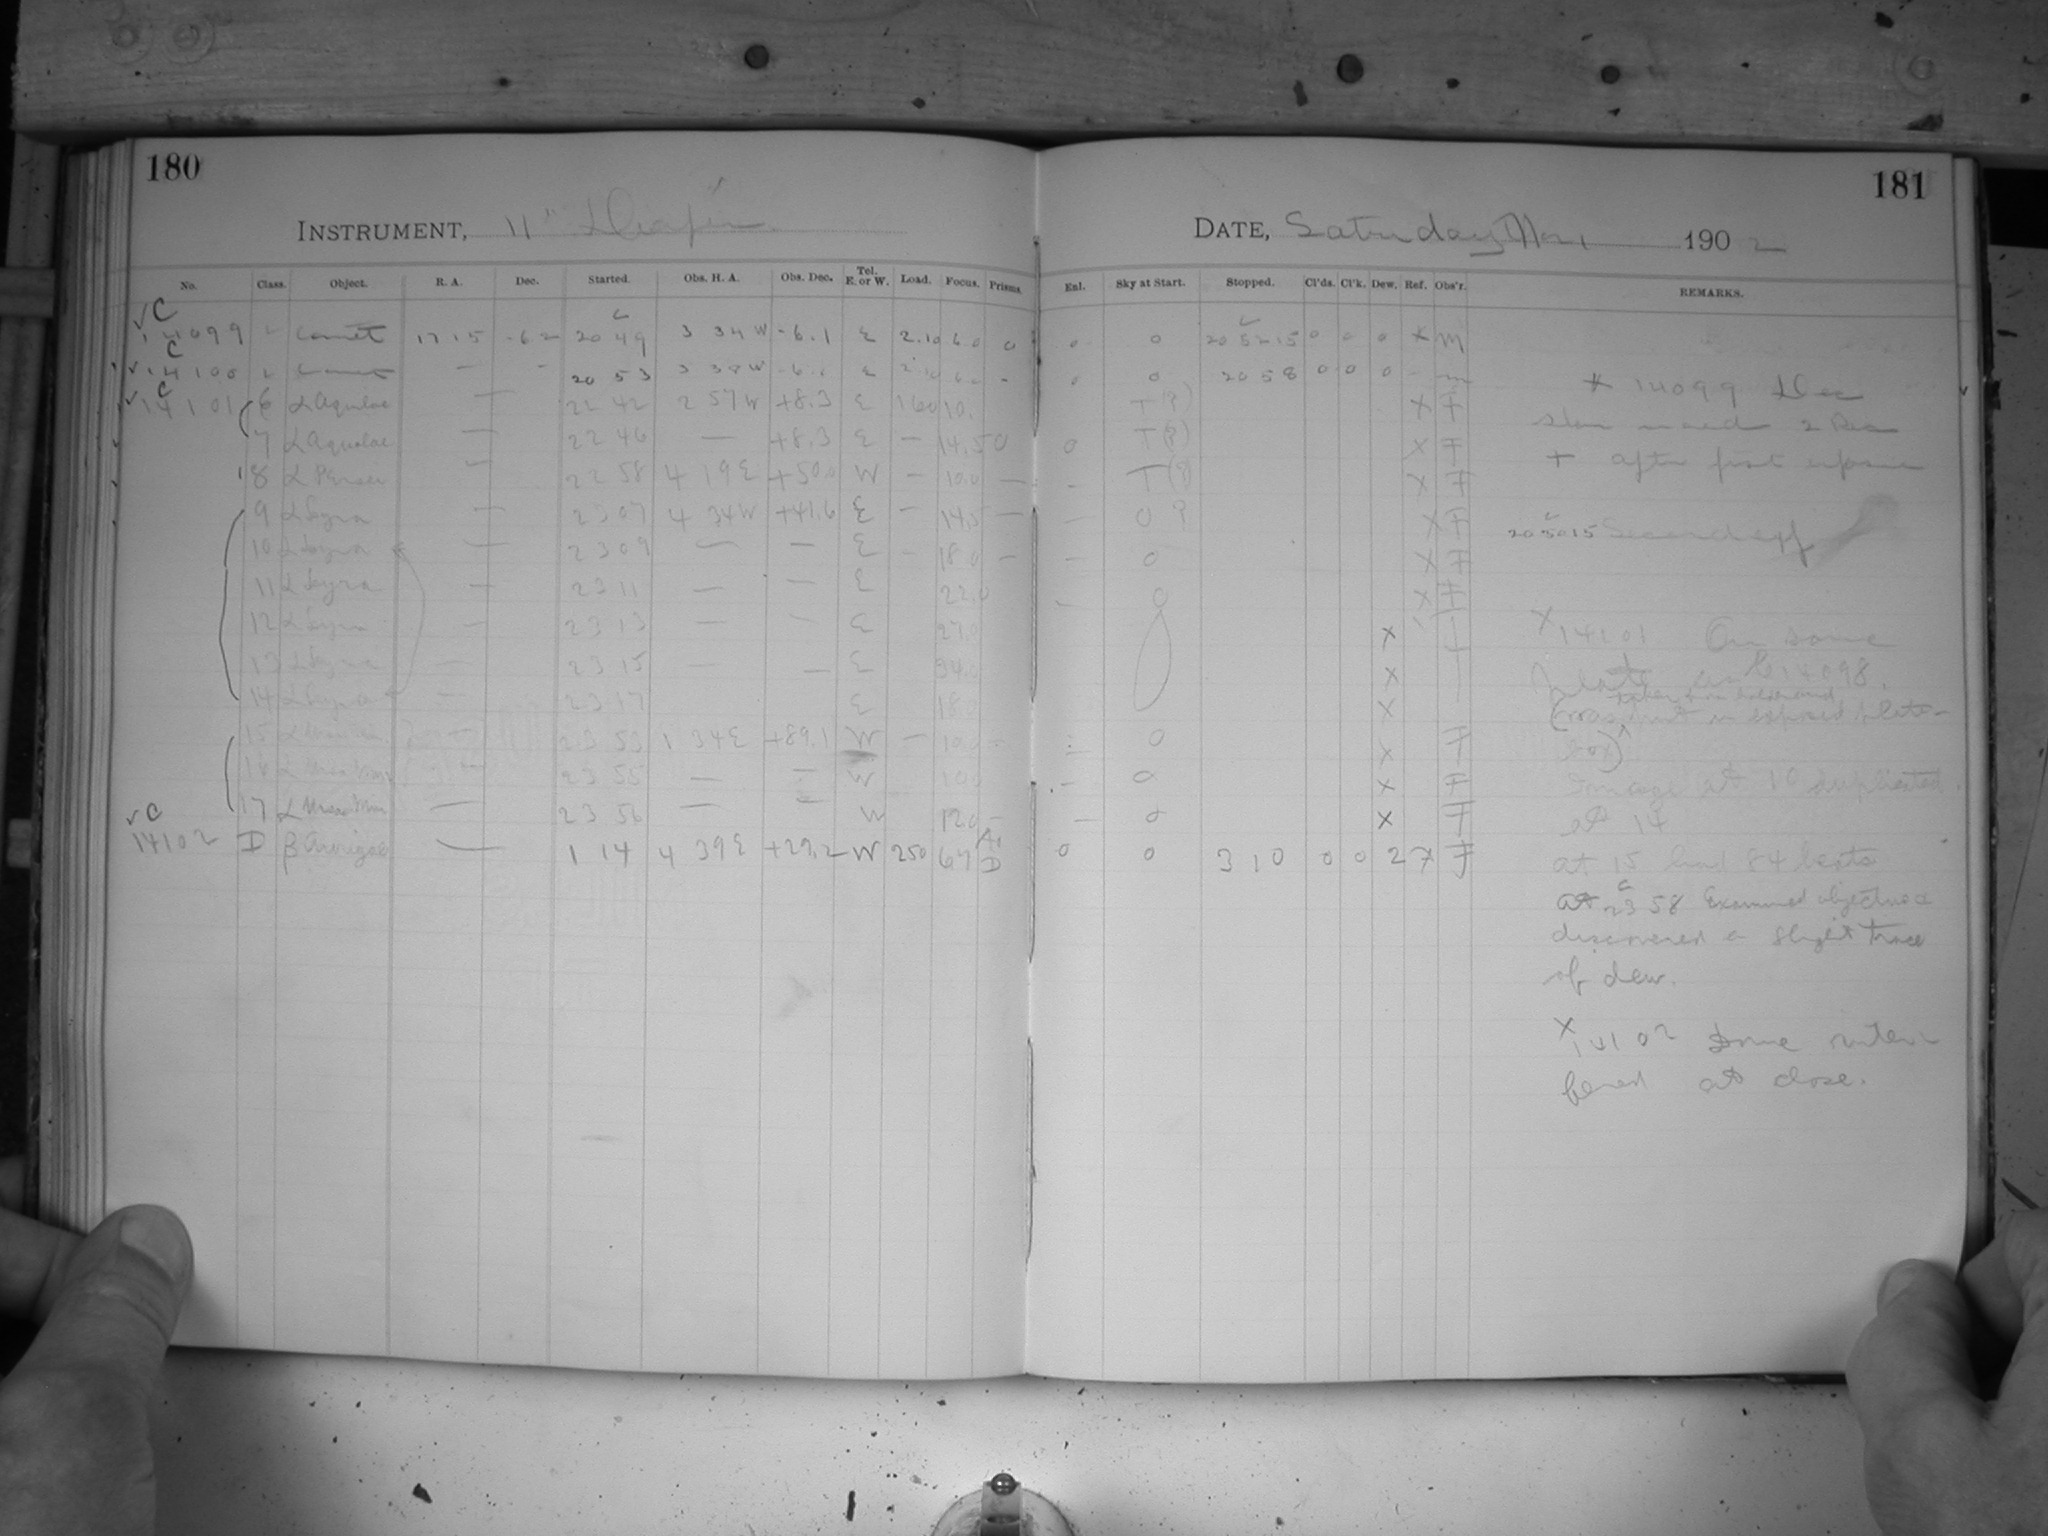 180
181
INSTRUMENT, 11" Draper
DATE, Saturday Nov 1 1902
No. Class. Object. R. A. Dec. Started. Obs. H. A. Obs. Dec. Tel. E. or W. Load. Focus. Prisms. Enl. Sky at Start. Stopped. Cl'ds. Cl'k. Dew. Ref. Obs'r. REMARKS.
C
14099 L Comet 17 15 -6 2 20 49 3 34 W -6.1 E 2.10 6.0 0 0 0 20 52 15 0 0 0 * M
C
14100 L Comet — - 20 53 3 38 W E 0 0 20 58 0 0 0 - m
C
14101 6 α Aquilae — 22 42 2 57 W +8.3 E 160 10. T(?) X F
7 α Aquilae — 22 46 — +8.3 E — 14.5 0 0 T(?) X F
8 α Persei — 22 58 4 19 E +50.0 W — 10.0 — — T(?) X F
9 α Lyra — 23 07 4 34 W +41.6 E — 14.5 — — 0 ? X F
10 α Lyra — 23 09 — — E - 18.0 — — 0 X F
11 α Lyra — 23 11 — — E 22.0 — 0 X F
12 α Lyra — 23 13 — — E 27.0 X
13 α Lyra — 23 15 — — E 34.0 X
14 α Lyra — 23 17 E 18.0 X
15 23 53 1 34 E +89.1 W — 10.0 0 X F
16 23 55 — — W 10.0 0 X F
17 α Ursae Min — 23 56 — — W 12.0 - — 0 X F
C
14102 D β Aurigae — 1 14 4 39 E +29.2 W 250 67 D 0 0 3 10 0 0 2 X F
* 14099 Dec
slow moved 2
+ after first exposure
20 50 15 Second exp
X 14101 On same
plate as C 14098.
in exposed plate-
box)
Image at 10 duplicated
at 14
at 15 had 84 beats
at 23 58 Examined objective &
discovered a slight trace
of dew.
X 14102 Dome inter-
fered at close.